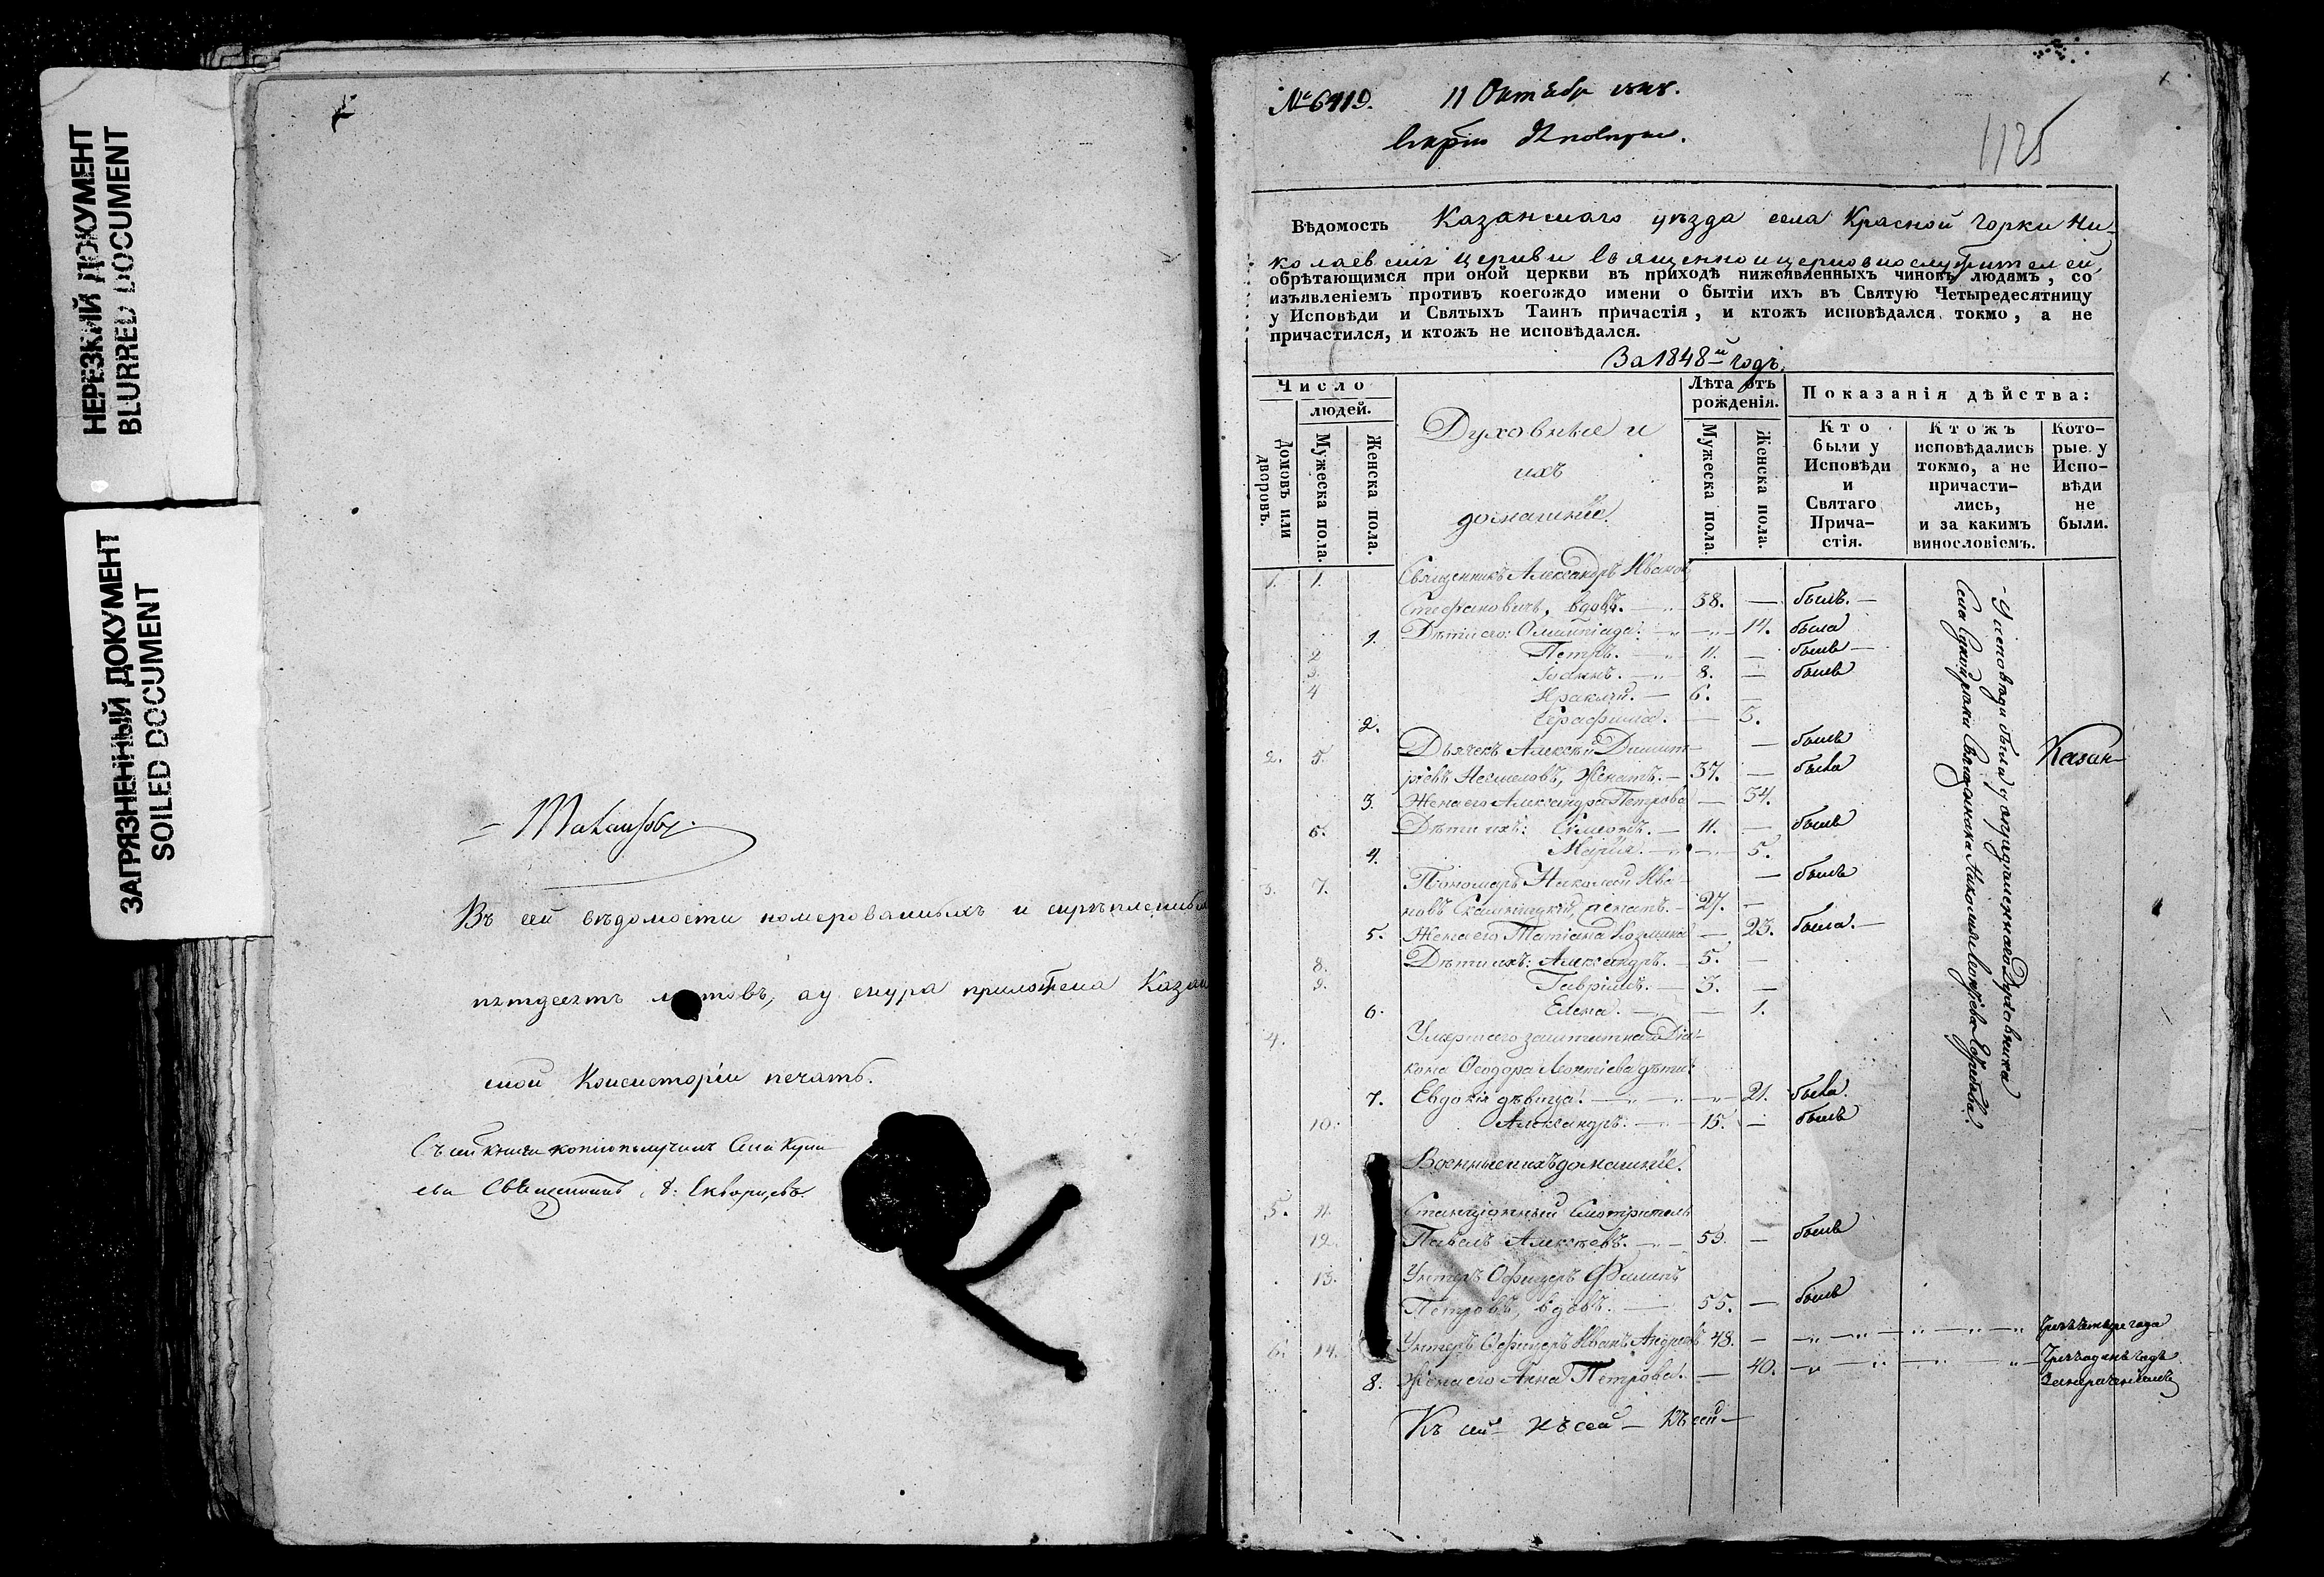 НЕРЕЗКИЙ ДОКУМЕНТ
BLURRED DOCUMENT
ЗАГРЯЗНЕННЫЙ ДОКУМЕНТ
SOILED DOCUMENT
Въ сей вѣдомости номерованныхъ и скрѣпленныхъ
пятдесятъ листовъ, а у снура приложена Казан
ской Консисторіи печать.
Съ сей книги копію получилъ Села
Священникъ
№ 6419. 11 Октябр 1848.
1125
Вѣдомость Казанскаго уѣзда села Красной Горки Ни-
колаевской церкви священноицерковнослужителей,
обрѣтающимся при оной церкви въ приходѣ нижеявленныхъ чиновъ людямъ, со
изъявленіемъ противъ коегождо имени о бытіи ихъ въ Святую Четыредесятницу
у Исповѣди и Святыхъ Таинъ причастія, и ктожъ исповѣдался токмо, а не
причастился, и ктожъ не исповѣдался.
За 1848й годъ.
Число
людей.
Домовъ или дворовъ.
Мужеска пола.
Женска пола.
Духовные и
ихъ
домашніе.
Лѣта отъ
рожденія.
Мужеска пола.
Женска пола.
Показанія дѣйства:
Кто
были у
Исповѣди
и
Святаго
Прича-
стія.
Ктожъ
исповѣдались
токмо, а не
причасти-
лись,
и за какимъ
винословіемъ.
Кото-
рые у
Испо-
вѣди
не
были.
1. 1. Священникъ Александръ Иванов
Стефановичъ, вдовъ. — 38. — былъ. —
1. Дѣти его: Олимпіада. — 14. была
2 Петръ. — 11. — былъ —
3. Іоаннъ. — 8. — былъ
4 Ираклій. — 6. —
2. Серафима. — 5.
2. 5. Дьячекъ Алексѣй Димит- — былъ
ріевъ Несмеловъ, женатъ. — 37. — была
3. Жена его Александра Петрова — 34.
6. Дѣти ихъ: Симеонъ. — 11. — былъ
4. Марія. — 5.
3. 7. Пономарь Николай Ива- — былъ
новъ женатъ. — 27. —
5. Жена его Татіана Козмина — 23. была. —
8. Дѣти ихъ: Александръ. — 5. —
9. Гавріилъ. — 3. —
6. Елена. — 1.
4. Умершаго заштатнаго Діа-
кона Ѳеодора Леонтіева дѣти:
7. Евдокія дѣвица. — 21. была.
10. Александръ. — 15. — былъ
Военные и ихъ домашніе.
5. 11. Станціонный Смотритель
12. Павелъ Алексѣевъ. — 59. — былъ
13. Унтеръ Офицеръ Филипъ
Петровъ, вдовъ. — 55. — былъ
6. 14. Унтеръ Офицеръ Иванъ Андреевъ 48. —
8. Жена его Анна Петрова. — 40. —
Къ сей — къ сей — къ сей —
- У исповѣди были у опредѣленнаго Духовника
Казан-